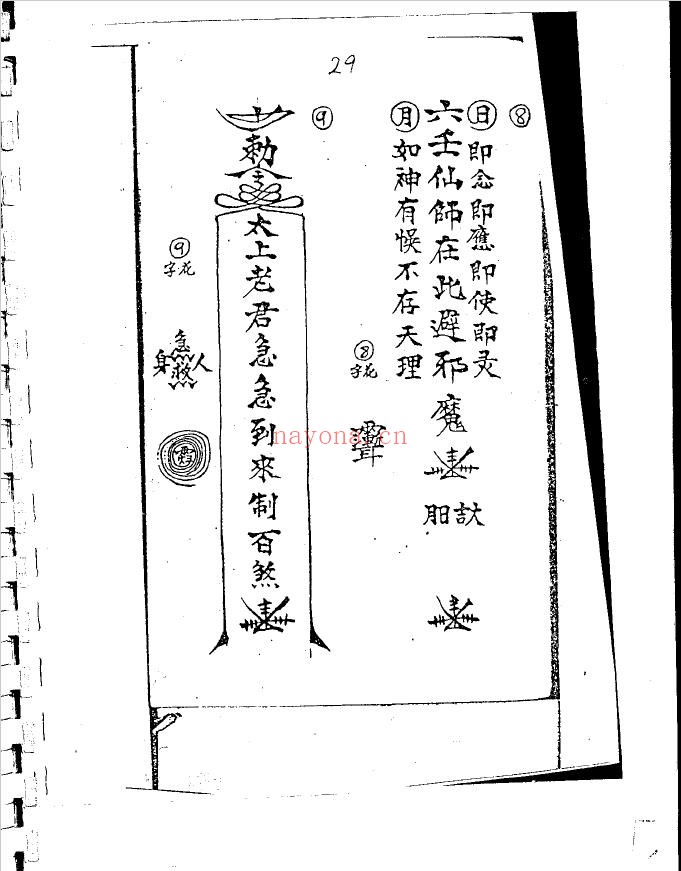 29
⑧
日 即念即應即使即灵
六壬仙師在此避邪魔
月 如神有悞不存天理
⑧
字花
⑨
勅令
太上老君急急到來制百煞
⑨
字花
急
身救人
霞
nayona.cn